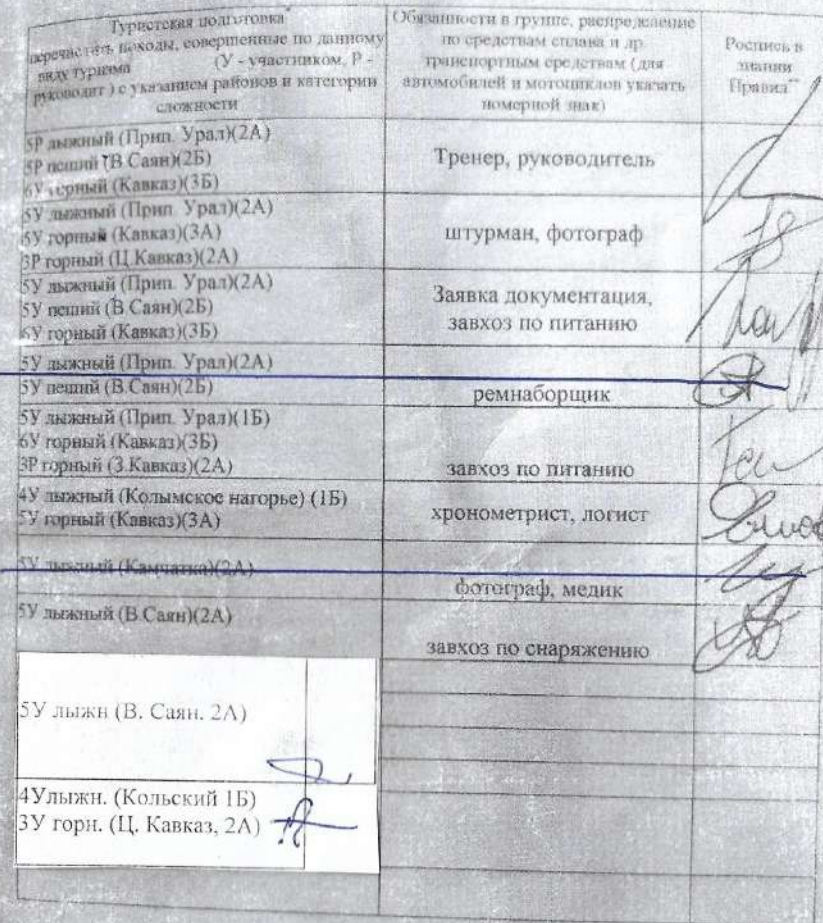 Туристская подготовка
перечислить походы, совершенные по данному
виду туризма (У - участником, Р -
руководит ) с указанием районов и категории
сложности
Обязанности в группе, распределение
по средствам сплава и др
транспортным средствам (для
автомобилей и мотоциклов указать
номерной знак)
Роспись в
знании
Правил**
5Р лыжный (Прип. Урал)(2А)
5Р пеший (В.Саян)(2Б)
6У горный (Кавказ)(3Б)
Тренер, руководитель
5У лыжный (Прип. Урал)(2А)
6У горный (Кавказ)(3А)
3Р горный (Ц.Кавказ)(2А)
штурман, фотограф
5У лыжный (Прип. Урал)(2А)
5У пеший (В.Саян)(2Б)
6У горный (Кавказ)(3Б)
Заявка документация,
завхоз по питанию
5У лыжный (Прип. Урал)(2А)
5У пеший (В.Саян)(2Б)
ремнаборщик
5У лыжный (Прип. Урал)(1Б)
6У горный (Кавказ)(3Б)
3Р горный (З.Кавказ)(2А)
завхоз по питанию
4У лыжный (Колымское нагорье) (1Б)
5У горный (Кавказ)(3А)
хронометрист, логист
5У лыжный (Камчатка)(2А)
фотограф, медик
5У лыжный (В.Саян)(2А)
завхоз по снаряжению
5У лыжн (В. Саян. 2А)
4Улыжн. (Кольский 1Б)
3У горн. (Ц. Кавказ, 2А)